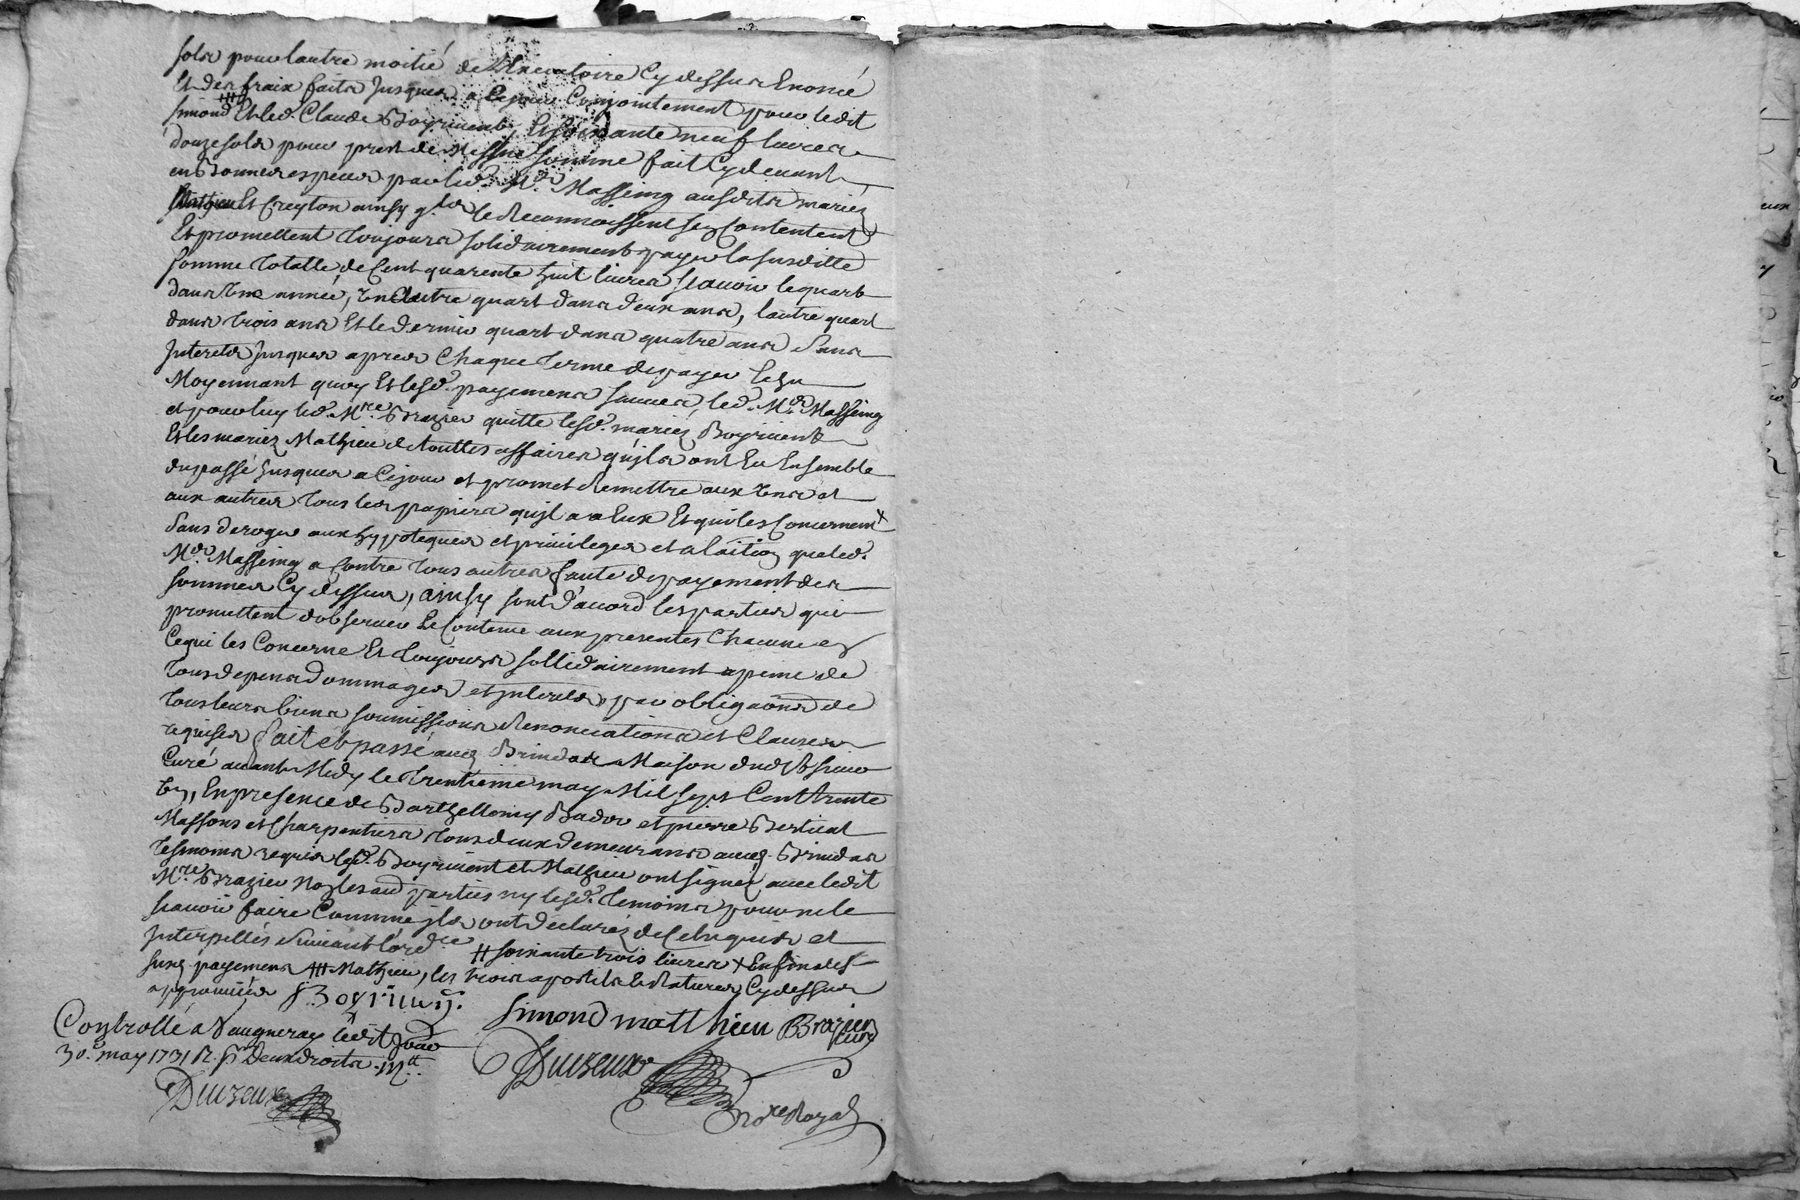 sols pour lautre moitié de Lexecutoire Cy dessus Enoncé
Et des fraix faits Jusques a Ce jour Conjointement pour ledit
simond Et led. Claude Boyriuent, Et soixante neuf livres
douze sols pour prest de mesme somme fait Cy deuant
en Bonnes especes par led. Mr. Masseing ausdits mariez
Mathieu Et Creyton ainsy qls le Reconnoissent sen Contentent
Et promettent Toujours solidairement payer la susditte
somme Totalle de Cent quarente huit livres scauoir le quart
dans Une année, Un Autre quart dans deux ans, lautre quart
dans trois ans Et le dernier quart dans quatre ans sans
Interets Jusques apres Chaque Terme de payer Echu
Moyennant quoy Et lesd. payemens sauues, led. Mr. Masseing
et pour luy led. Mre Brazier quitte lesd. mariez Boyriuent
Et les mariez Mathieu de Touttes affaires quils ont Eu Ensemble
du passé Jusques a Ce jour et promet Remettre aux Uns et
aux autres Tous les papiers quil a a Eux Et qui les Concernent x
sans deroger aux hypoteques et priuileges et a laction que led.
Mr. Masseing a Contre Tous autres faute de payement des
sommes Cy dessus, ainsy sont d'acord les parties qui
promettent dobseruer le Contenu aux presentes Chacune en
Ce qui les Concerne Et Toujours sollidairement a peine de
Tous depens dommages et Interets, par obligaons de
Tous leurs biens soumissions Renonciations et Clauses
requises fait et passé au Brindas Maison dud. sieur
Curé auant Midy le Trentieme may Mil sept Cent trente
Un, En presence de Barthellemy Bador et pierre Bertieat
Massons et Charpentiers Tous deux demeurans aud. Brindas
Tesmoins requis lesd. Boyriuent et Mathieu ont signé auec ledit
Mre Brazier Non les aud parties ny lesd. Temoins pour ne le
scauoir faire Comme ils ont declarés de Ce Enquis et
Interpellés suiuant lord.ce # soixante trois livres x En fin desd
susd payemens ### Mathieu, les trois apostils et Ratures Cy dessus
approuués
Boyriuen.
simond matthieu Brazier
Curé
Controllé a Vaugneray ledit Jour
30e may 1731 R. Deux droits
Duizeux
Duizeux
Nore Royal